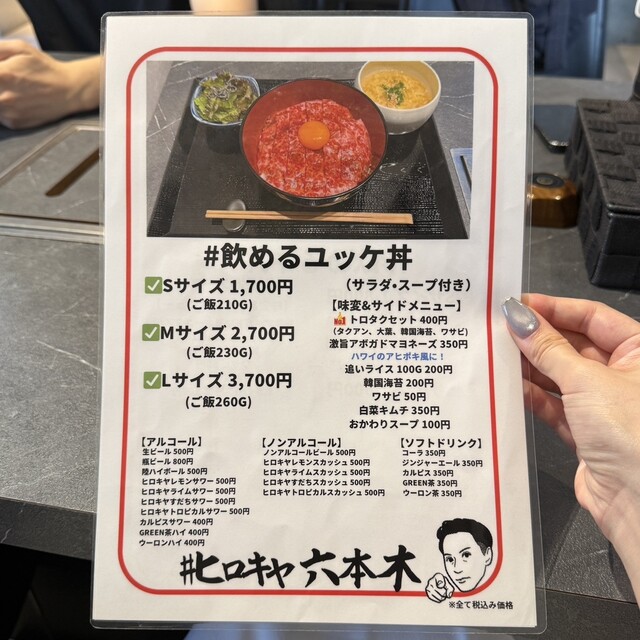 #飲めるユッケ丼
✅Sサイズ 1,700円
(ご飯210G)
✅Mサイズ 2,700円
(ご飯230G)
✅Lサイズ 3,700円
(ご飯260G)
(サラダ・スープ付き)
【味変&サイドメニュー】
No1 トロタクセット 400円
(タクアン、大葉、韓国海苔、ワサビ)
激旨アボガドマヨネーズ 350円
ハワイのアヒポキ風に！
追いライス 100G 200円
韓国海苔 200円
ワサビ 50円
白菜キムチ 350円
おかわりスープ 100円
【アルコール】
生ビール 500円
瓶ビール 800円
陸ハイボール 500円
ヒロキヤレモンサワー 500円
ヒロキヤライムサワー 500円
ヒロキヤすだちサワー 500円
ヒロキヤトロピカルサワー 500円
カルピスサワー 400円
GREEN茶ハイ 400円
ウーロンハイ 400円
【ノンアルコール】
ノンアルコールビール 500円
ヒロキヤレモンスカッシュ 500円
ヒロキヤライムスカッシュ 500円
ヒロキヤすだちスカッシュ 500円
ヒロキヤトロピカルスカッシュ 500円
【ソフトドリンク】
コーラ 350円
ジンジャーエール 350円
カルピス 350円
GREEN茶 350円
ウーロン茶 350円
#ヒロキヤ 六本木
※全て税込み価格